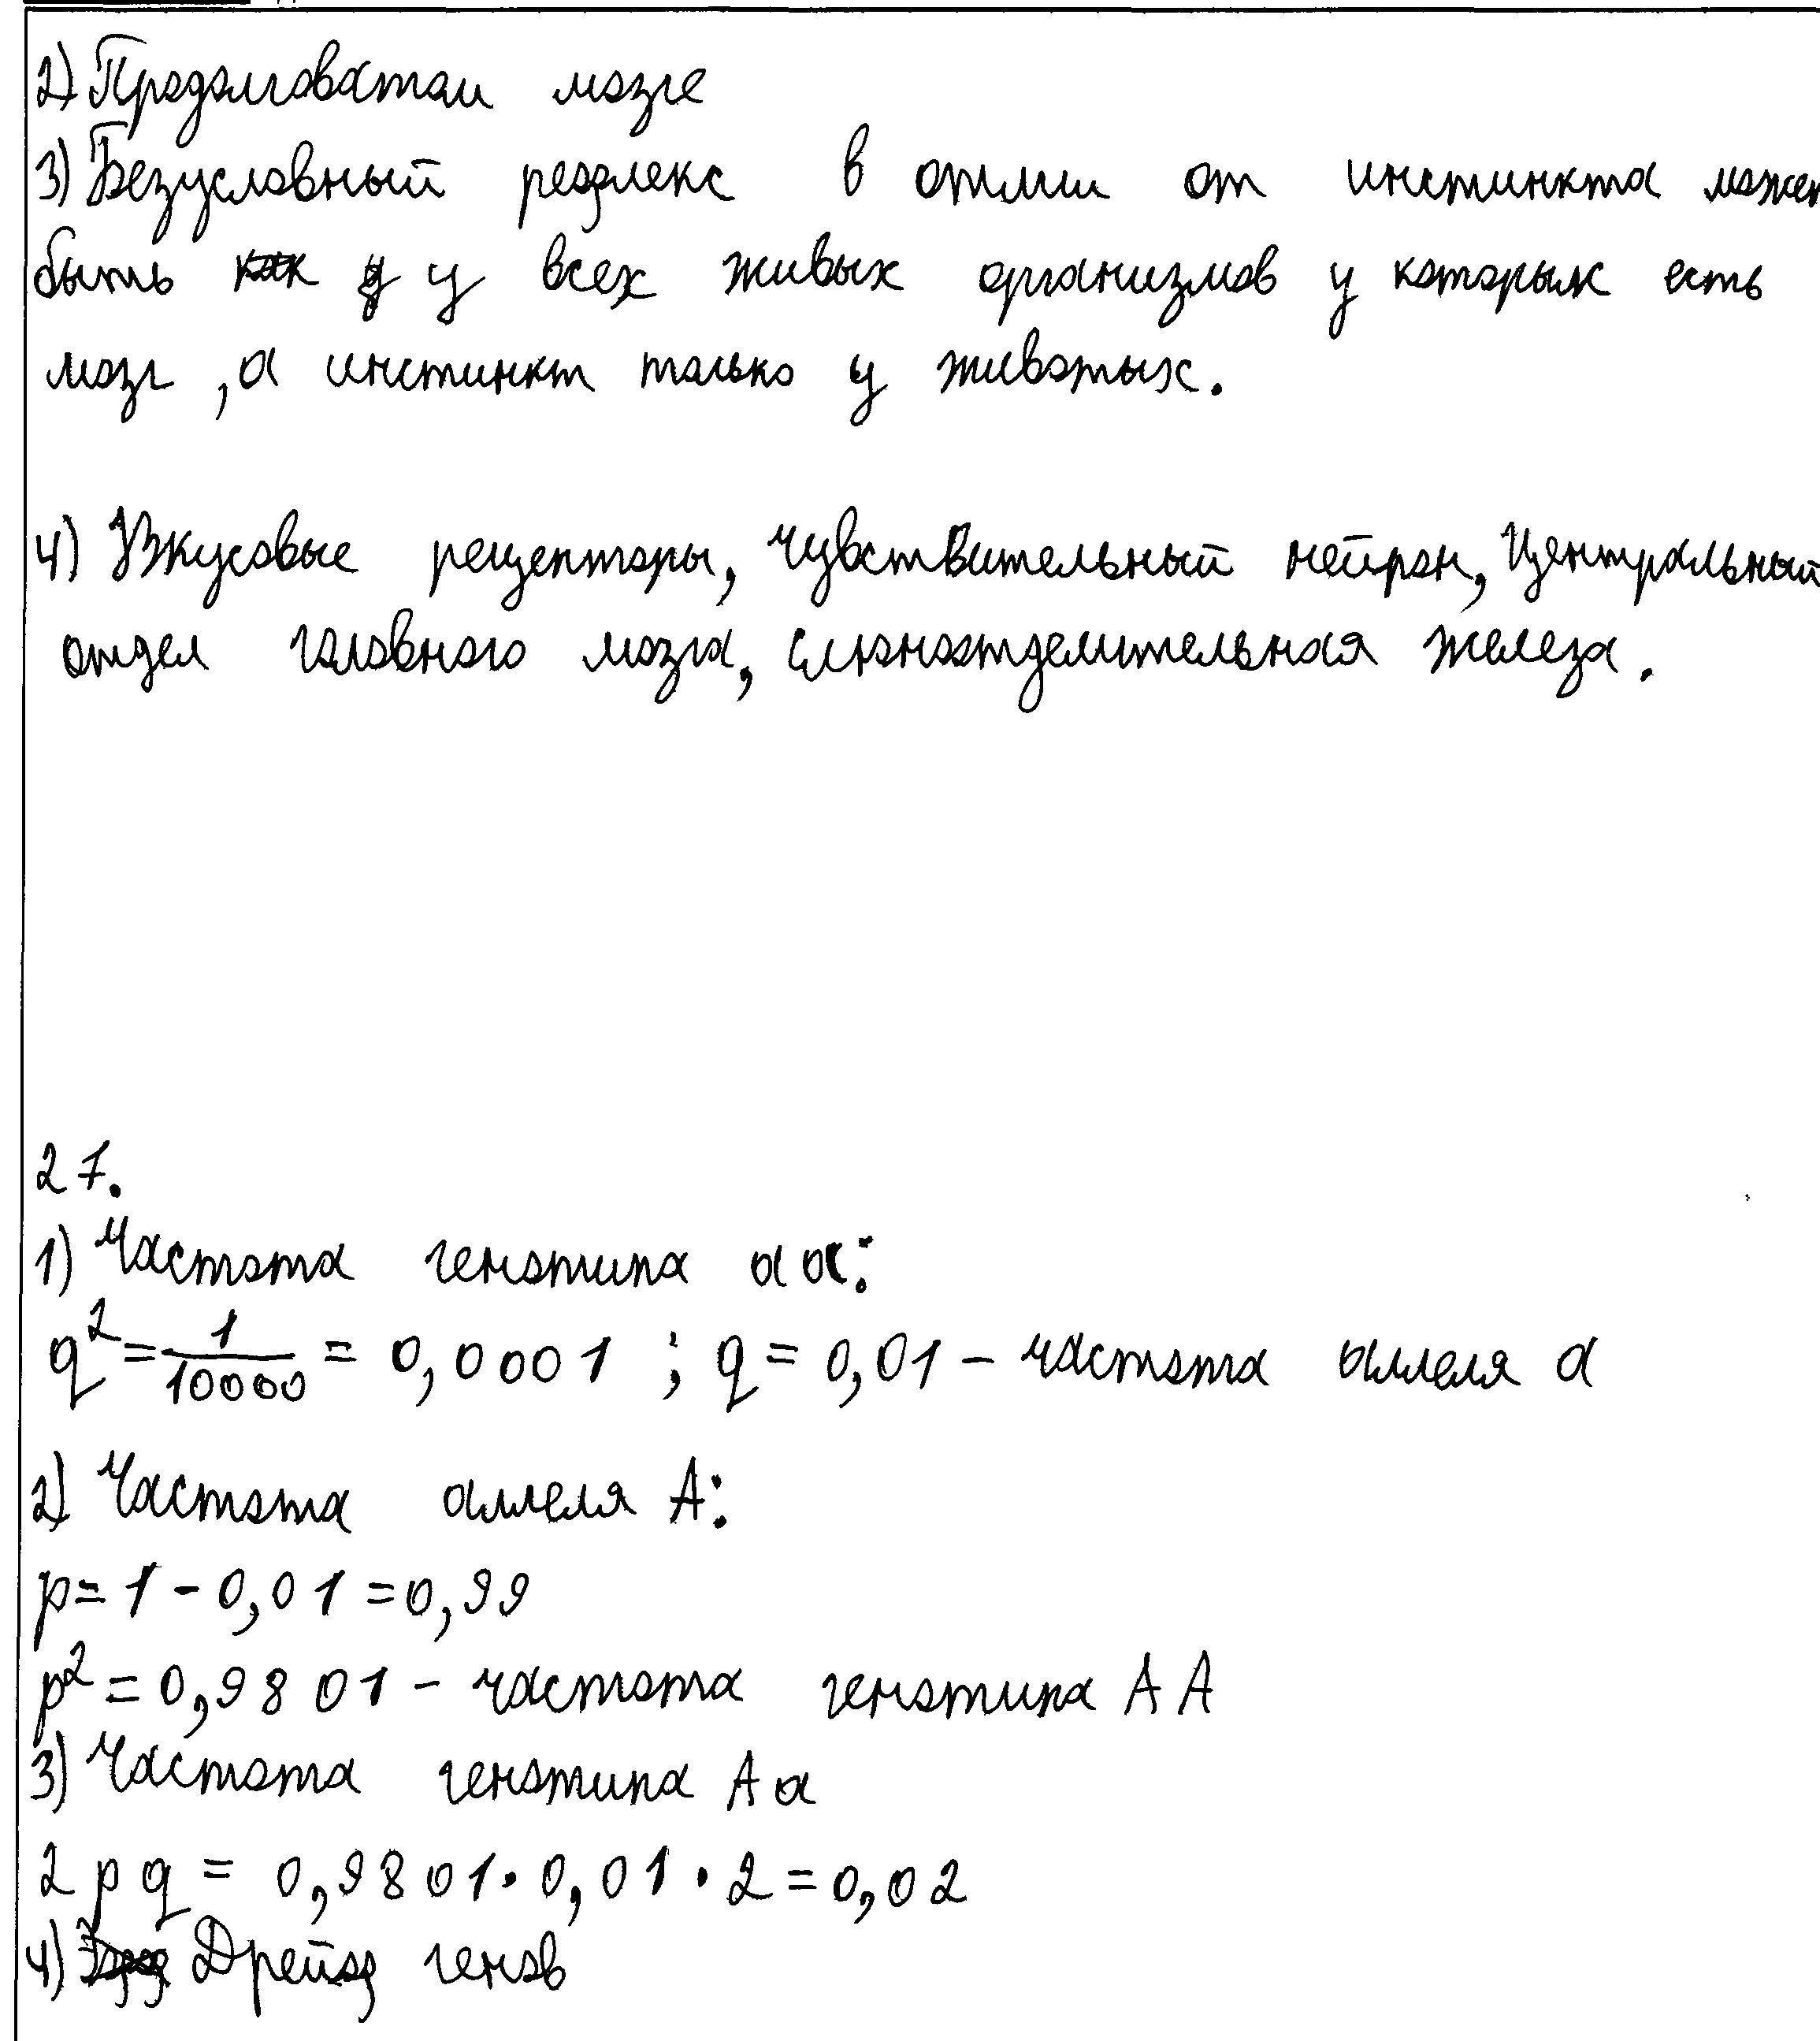 2) Продолговатом мозге
3) Безусловный рефлекс в отлии от инстинкта может
быть у всех живых организмов у которых есть
мозг, а инстинкт только у животых.
4) Вкусовые рецепторы, чувствительный нейрон, Центральный
отдел головного мозга, слюноотделительная железа.
27.
1) Частота генотипа aa:
q² = 1/10000 = 0,0001 ; q = 0,01 – частота аллеля a
2) Частота аллеля A:
p = 1 - 0,01 = 0,99
p² = 0,9801 – частота генотипа AA
3) Частота генотипа Aa
2pq = 0,9801 · 0,01 · 2 = 0,02
4) Дрейф генов